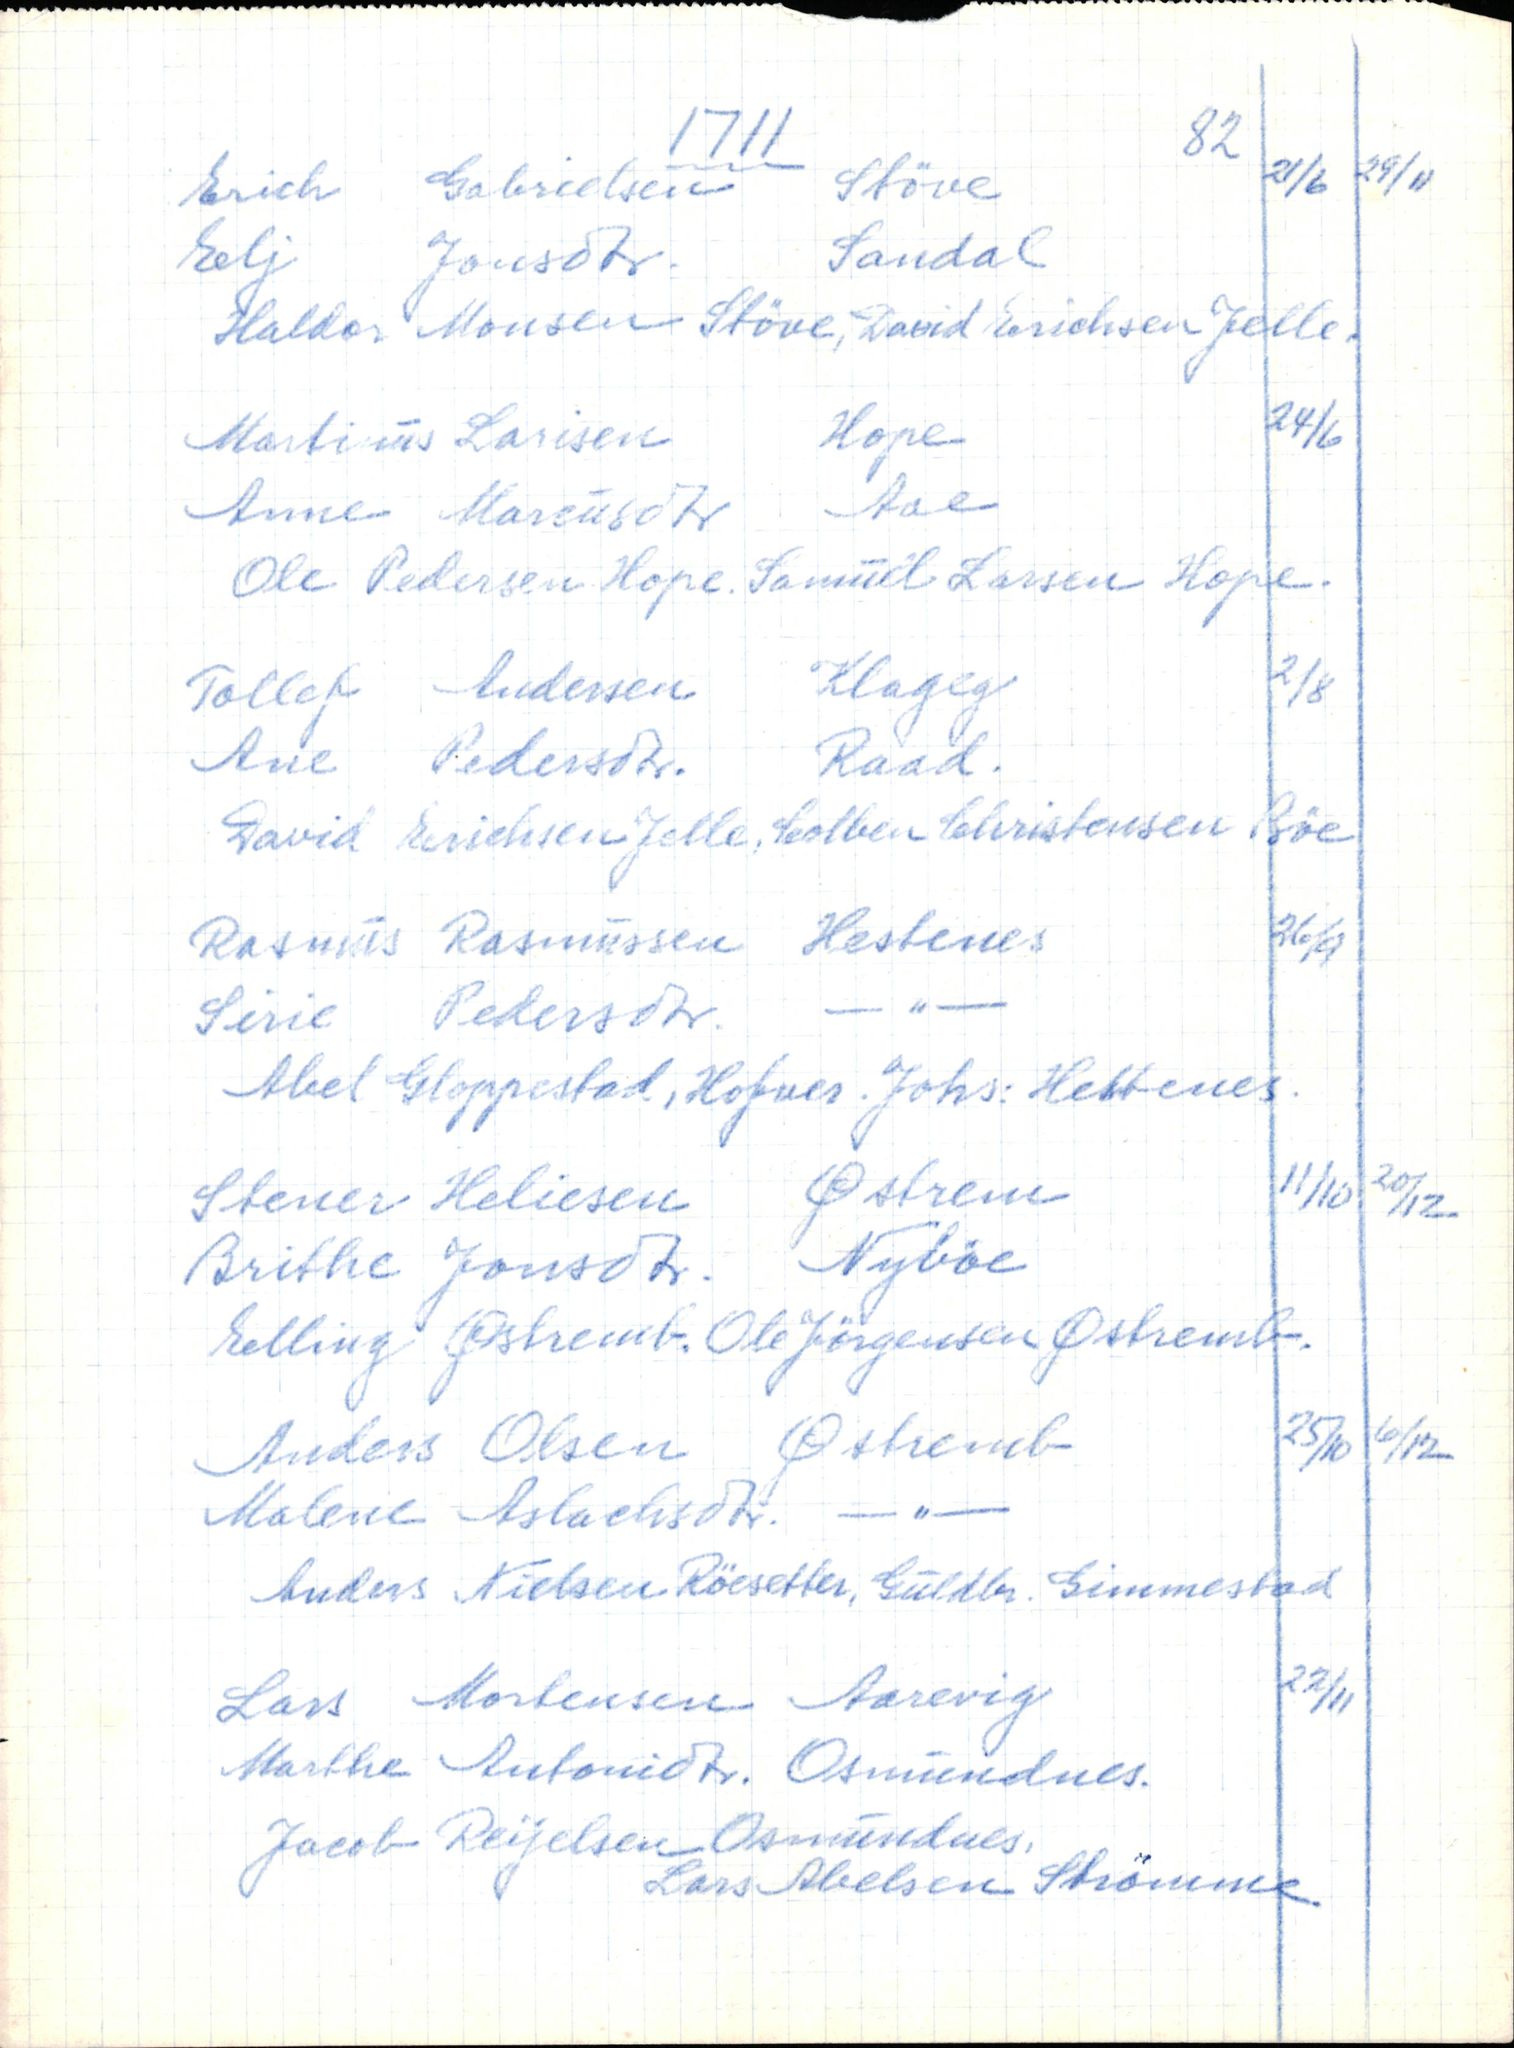 1711 82
Erich Gabrielsen Støve 21/6 29/11
Eli Jonsdtr. Sandal
Haldor Monsen Støve, David Erichsen Jelle.
Martinus Larisen Hope 24/6
Anne Marcusdtr Aae
Ole Pedersen Hope. Samuel Larsen Hope.
Tollef Andersen Klageg 2/8
Ane Pedersdtr. Raad.
David Erichsen Jelle, Colben Christensen Böe
Rasmus Rasmussen Hestenes 26/9
Sirie Pedersdtr. — " —
Abel Gloppestad, Hofver. Johs: Hestenes.
Stener Heliesen Østrem 11/10 20/12
Brithe Jonsdtr. Nyböe
Elling Østremb. Ole Jörgensen Østremb.
Anders Olsen Østremb 25/10 6/12
Malene Aslachsdtr. — " —
Anders Nielsen Röesetter, Guldbr. Gimmestad
Lars Mortensen Aarevig 22/11
Marthe Antonidtr. Osmundnes.
Jacob Reijelsen Osmundnes.
Lars Abelsen Strömme